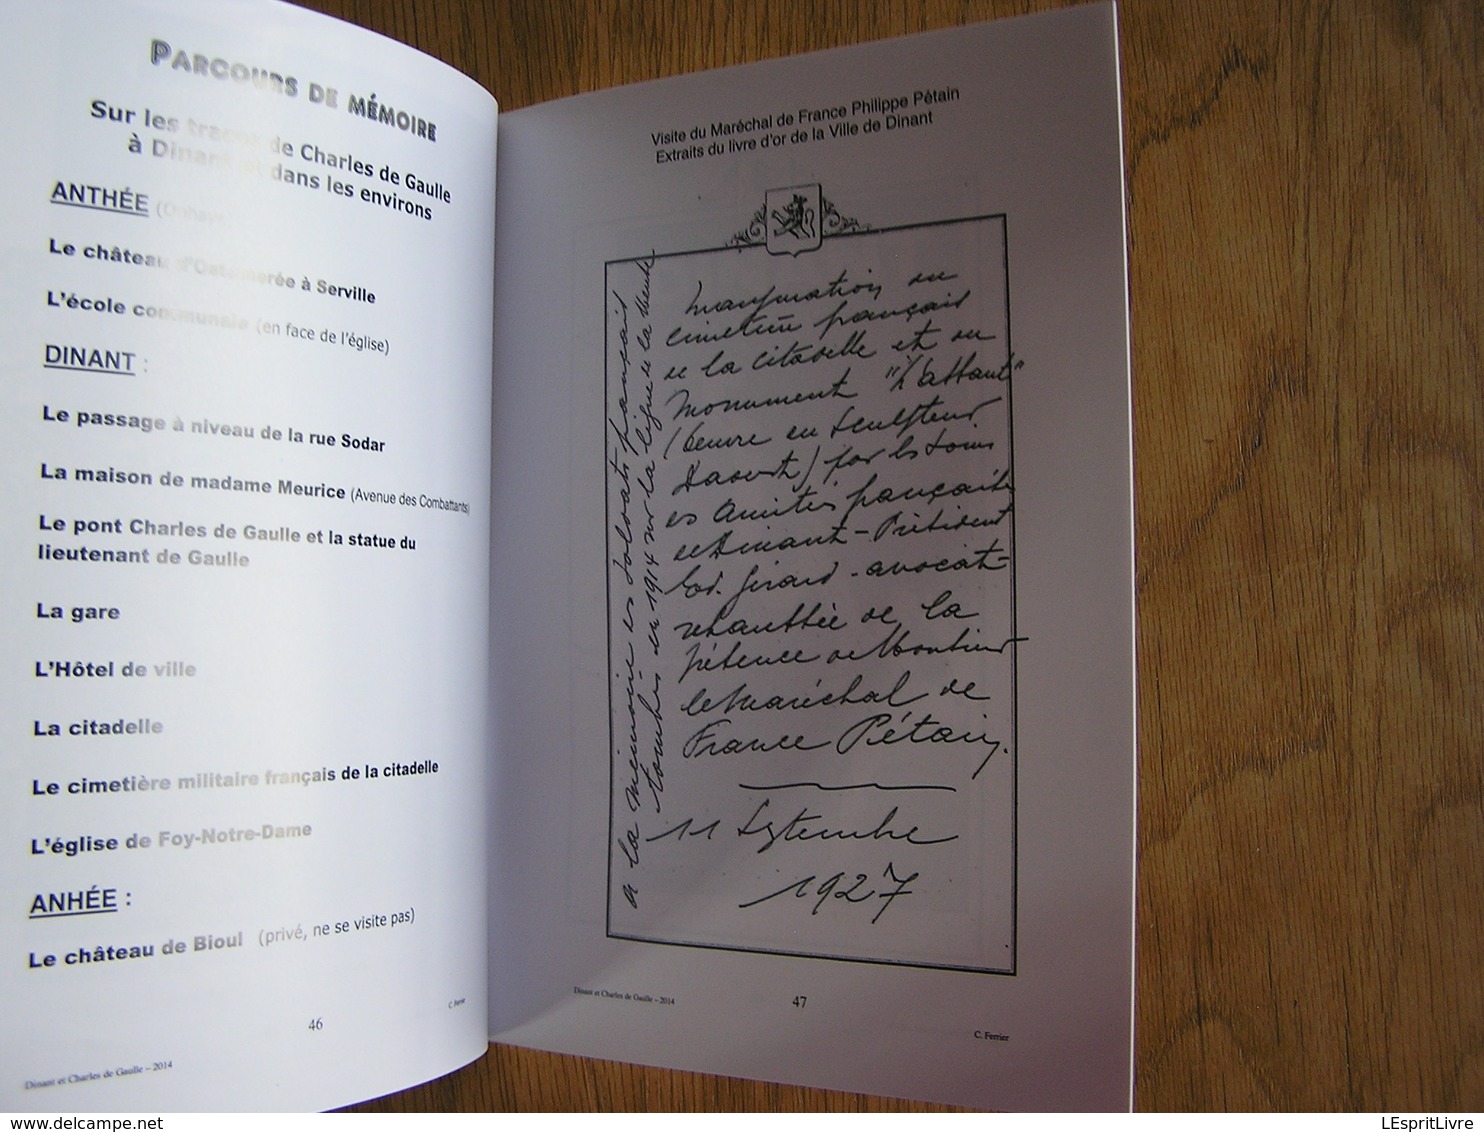 PARCOURS DE MÉMOIRE
Sur les traces de Charles de Gaulle
à Dinant et dans les environs
ANTHÉE (Onhaye)
Le château d'Ostemerée à Serville
L'école communale (en face de l'église)
DINANT :
Le passage à niveau de la rue Sodar
La maison de madame Meurice (Avenue des Combattants)
Le pont Charles de Gaulle et la statue du
lieutenant de Gaulle
La gare
L'Hôtel de ville
La citadelle
Le cimetière militaire français de la citadelle
L'église de Foy-Notre-Dame
ANHÉE :
Le château de Bioul (privé, ne se visite pas)
C. Ferrier
46
Dinant et Charles de Gaulle – 2014
Visite du Maréchal de France Philippe Pétain
Extraits du livre d'or de la Ville de Dinant
A la mémoire des soldats français
tombés en 1914 sur la ligne de la Meuse
Inauguration du
cimetière français
de la citadelle et du
Monument "L'assaut"
(œuvre du sculpteur
Dasonst) par les soins
des Amitiés françaises
de Dinant – Président
Ed. Gérard – avocat –
rehaussée de la
présence de Monsieur
le Maréchal de
France Pétain.
11 Septembre
1927
Dinant et Charles de Gaulle – 2014
47
C. Ferrier
LEspritLivre